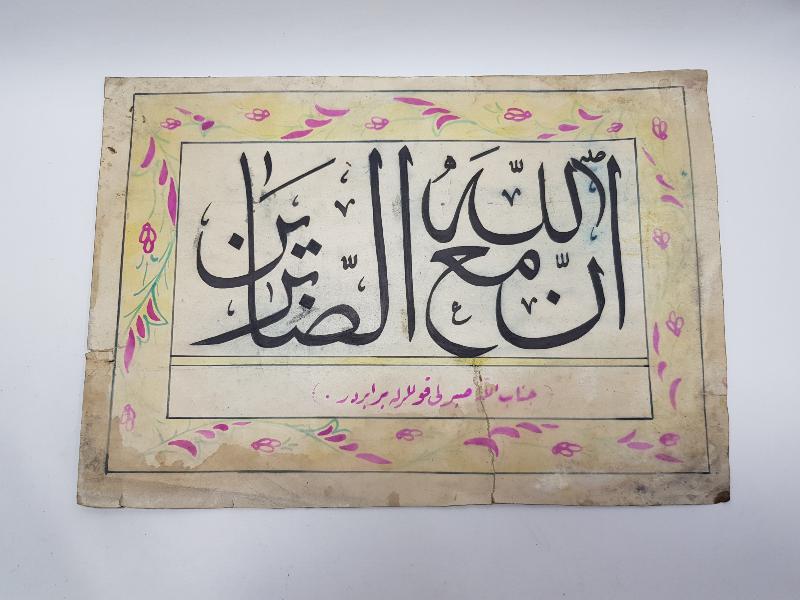 ان الله مع الصابرين
( جناب الله صبرلى قوللرله برابردر . )